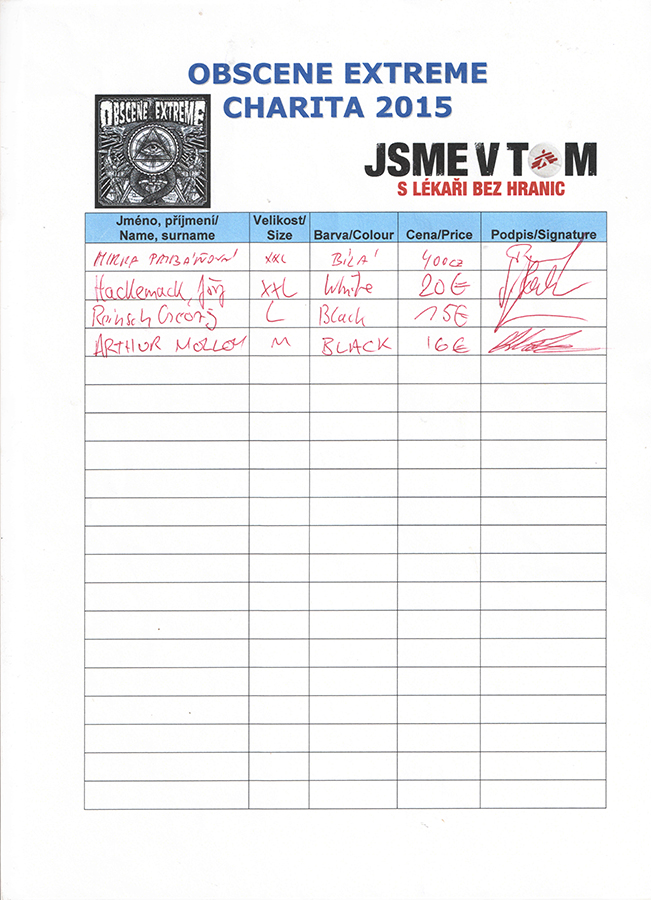 OBSCENE EXTREME
CHARITA 2015
OBSCENE EXTREME
JSME V TOM
S LÉKAŘI BEZ HRANIC
Jméno, příjmení/ Velikost/
Name, surname Size Barva/Colour Cena/Price Podpis/Signature
MIRKA XXL BÍLÁ 400
Hackemack, Jörg XXL White 20€
Rainsch Georg L Black 15€
ARTHUR MOLLOY M BLACK 16€